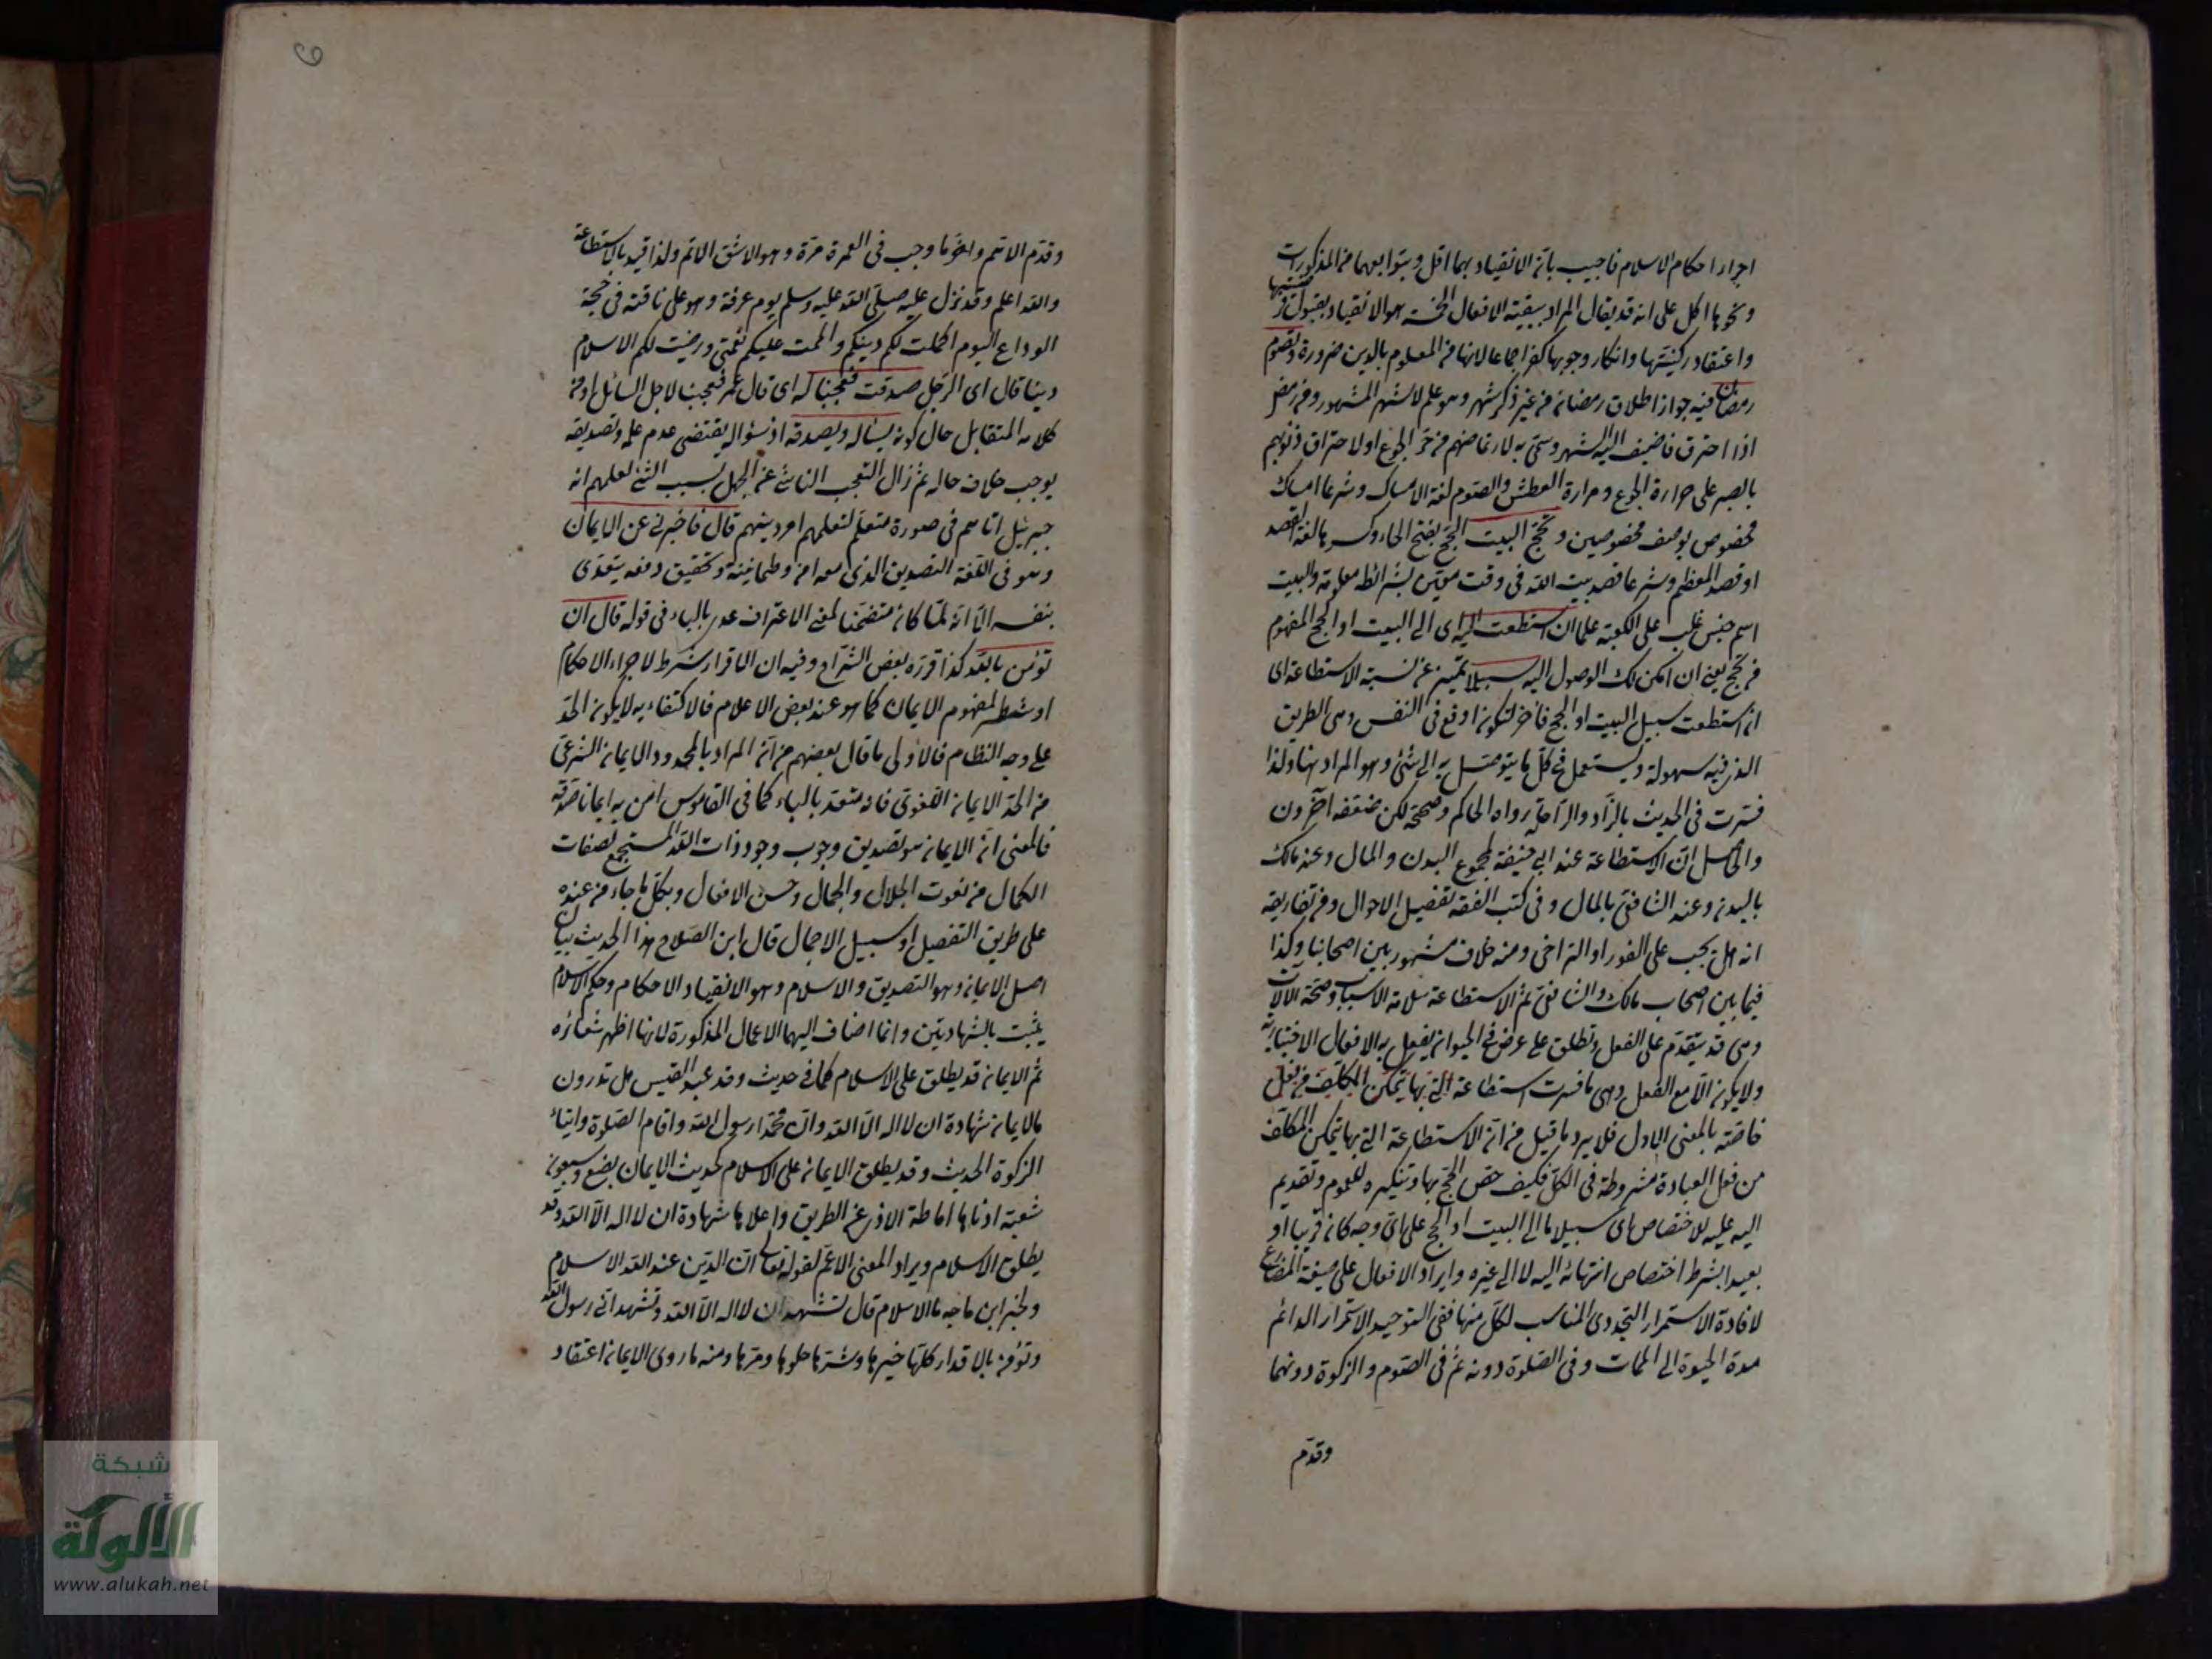 اجراء احكام الاسلام فاجيب بانه الانقياد بهما اقل وبتوابعهما من المذكورات
ونحوها اكمل على انه قد يقال المراد ببقية الافعال الخمسة هو الانقياد بقبول
واعتقاد ركنيتها وانكار وجوبها كفر اجماعا لانها من المعلوم بالدين ضرورة وتصوم
رمضان فيه جواز اطلاق رمضان من غير ذكر شهر وهو علم لاسم الشهر المشهور من رمض
اذا احترق فاضيف اليه الشهر وسمى به لارتماضهم من حر الجوع او لاحتراق ذنوبهم
بالصبر على حرارة الجوع ومرارة العطش والصوم لغة الامساك وشرعا امساك
مخصوص بوصف مخصوصين وتحج البيت الحج بفتح الحاء وكسرها لغة القصد
او قصد المعظم وشرعا قصد بيت الله فى وقت معين بشرائط معلومة والبيت
اسم جنس غلب على الكعبة علما ان استطعت اليه اى الى البيت او الحج المفهوم
من تحج يعنى ان امكن لك الوصول اليه سبيلا تمييز عن نسبة الاستطاعة اى
ان استطعت سبيل البيت او الحج فاخر ليكون اوقع فى النفس وهى الطريق
الذى فيه سهولة ويستعمل فى كل ما يتوصل به الى شئ وهو المراد هنا ولذا
فسرت فى الحديث بالزاد والراحلة رواه الحاكم وصححه لكن ضعفه آخرون
والحاصل ان الاستطاعة عند ابى حنيفة بمجموع البدن والمال وعند مالك
بالبدن وعند الشافعى بالمال وفى كتب الفقه تفصيل الاحوال ومن تفاريعه
انه هل يجب على الفور او التراخى ومنه خلاف مشهور بين اصحابنا وكذا
فيما بين اصحاب مالك والشافعى ثم الاستطاعة سلامة الاسباب وصحة الآلات
وهى قد يتقدم على الفعل وتطلق على عرض فى الحيوان يفعل به الافعال الاختيارية
ولا يكون الا مع الفعل وهى ما فسرت استطاعة التى بها يتمكن المكلف من فعل
خاصة بالمعنى الاول فلا يرد ما قيل من ان الاستطاعة التى بها يتمكن المكلف
من فعل العبادة مشروطة فى الكل فكيف خص الحج بها وتنكيره للعموم وتقديم
اليه عليه للاختصاص اى سبيلا ما الى البيت او الحج على اى وجه كان قريبا او
بعيدا بشرط اختصاص انتهائه اليه لا الى غيره وايراد الافعال على صيغة المضارع
لافادة الاستمرار التجددى المناسب لكل منها ففى التوحيد الاستمرار الدائم
مدة الحيوة الى الممات وفى الصلوة دونه ثم فى الصوم والزكوة دونهما
وقدم
وقدم الاتم واخر ما وجب فى العمرة مرة وهو الاشق الاتم ولذا قيد بالاستطاعة
والله اعلم وقد نزل عليه صلى الله عليه وسلم يوم عرفة وهو على ناقته فى حجة
الوداع اليوم اكملت لكم دينكم واتممت عليكم نعمتى ورضيت لكم الاسلام
دينا قال اى الرجل صدقت فعجبنا له اى قال عمر فعجبنا لاجل السائل او من
كلامه المتقابل حال كونه يسأله ويصدقه اذ سؤاله يقتضى عدم علمه وتصديقه
يوجب خلاف حاله ثم زال التعجب الناشئ عن الجهل بسبب الشئ لعلمهم انه
جبرئيل اتاهم فى صورة متعلم لتعلمهم امر دينهم قال فاخبرنى عن الايمان
وهو فى اللغة التصديق الذى معه امن وطمانينة وتحقيق ومعه يتعدى
بنفسه الا انه لما كان متضمنا لمعنى الاعتراف عدى بالباء فى قوله قال ان
تؤمن بالله كذا قرره بعض الشراح وفيه ان الاقرار شرط لاجراء الاحكام
او شطر لمفهوم الايمان كما هو عند بعض الاعلام فالاكتفاء به لا يكون الحد
على وجه النظام فالاولى ما قال بعضهم من ان المراد بالمحدود الايمان الشرعى
من الحد الايمان اللغوى فانه متعد بالباء كما فى القاموس امن به ايمانا صدقه
فالمعنى ان الايمان هو تصديق وجوب وجود ذات الله المستجمع لصفات
الكمال من نعوت الجلال والجمال وحسن الافعال وبكل ما جاء من عنده
على طريق التفصيل او سبيل الاجمال قال ابن الصلاح هذا الحديث بيان
اصل الايمان وهو التصديق والاسلام وهو الانقياد الاحكام وحكم الاسلام
يثبت بالشهادتين وانما اضاف اليهما الاعمال المذكورة لانها اظهر شعائره
ثم الايمان قد يطلق على الاسلام كما فى حديث وفد عبد القيس هل تدرون
ما الايمان شهادة ان لا اله الا الله وان محمدا رسول الله واقام الصلوة وايتاء
الزكوة الحديث وقد يطلق الايمان على الاسلام كحديث الايمان بضع وسبعون
شعبة ادناها اماطة الاذى عن الطريق واعلاها شهادة ان لا اله الا الله وقد
يطلق الاسلام ويراد المعنى الاعم لقوله تعالى ان الدين عند الله الاسلام
ولخبر ابن ماجه ما الاسلام قال تشهد ان لا اله الا الله وتشهد انى رسول الله
وتؤمن بالاقدار كلها خيرها وشرها حلوها ومرها ومنه ما روى الايمان اعتقاد
شبكة
الألوكة
www.alukah.net